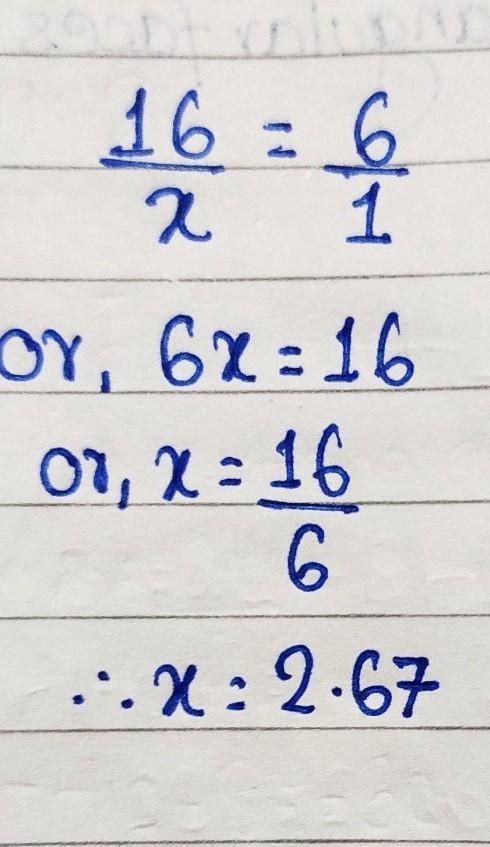 16/x = 6/1
or, 6x = 16
or, x = 16/6
∴ x = 2.67